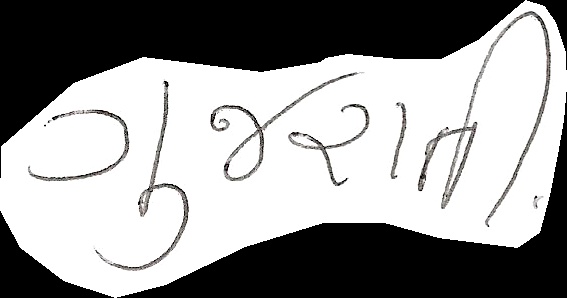 ગુજરાતી.